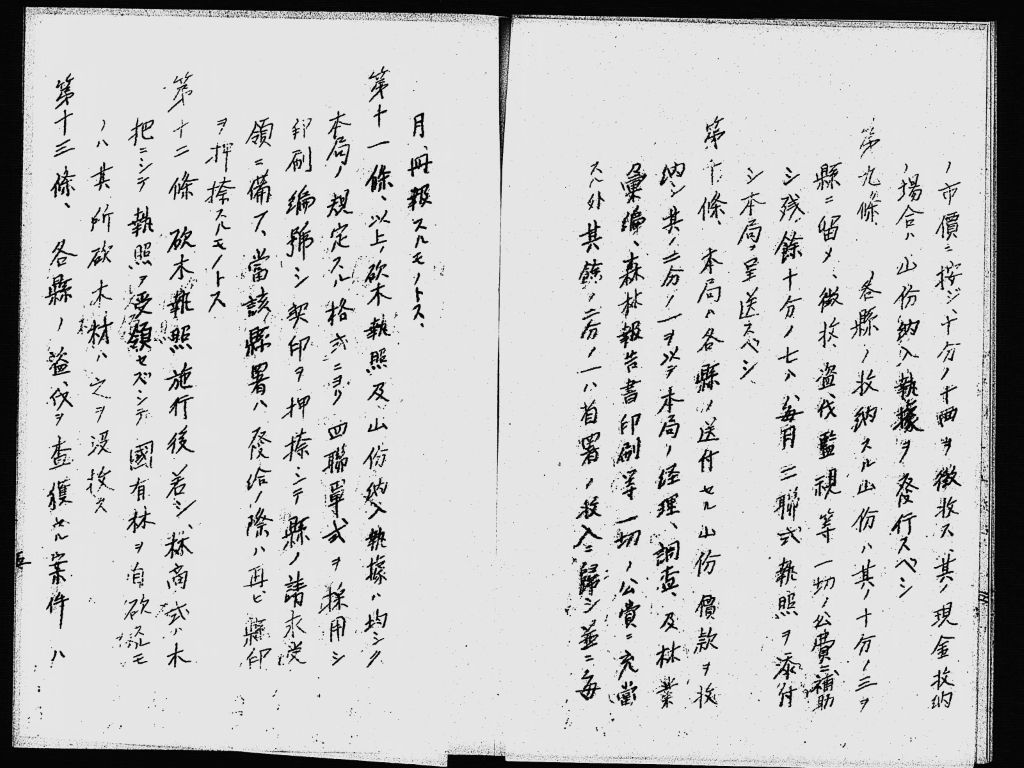 ノ市價ニ按ジ、十分ノ十両ヲ徴收ス、其ノ現金收納
ノ場合ハ山份納入執據ヲ發行スベシ
第九條　各縣ノ收納スル山份ハ其ノ十分ノ三ヲ
縣ニ留メ、徴收、盗伐監視等一切ノ公費ニ補助
シ残餘十分ノ七ハ毎月三聯式執照ヲ添付
シ本局ヲ呈送スベシ
第十條、本局ハ各縣ノ送付セル山份價款ヲ收
納シ其ノ二分ノ一ヲ以テ本局ノ経理、調査、及林業
彙編、森林報告書印刷等一切ノ公費ニ充當
スル外其餘ノ二分ノ一ハ首署ノ收入ニ歸シ並ニ毎
月、冊報スルモノトス、
第十一條、以上ノ砍木執照及山份納入執據ハ均シク
本局ノ規定スル格式ニヨリ四聯單式ヲ採用シ
印刷編號シ契印ヲ押捺シテ縣ノ請求受
領ニ備フ、當該縣署ハ發給ノ際ハ再ビ縣印
ヲ押捺スルモノトス
第十二條　砍木執照施行後若シ、林商式ハ木
把ニシテ執照ヲ受領セズシテ國有林ヲ自砍スルモ
ノハ其所砍木材ハ之ヲ没收ス
第十三條、各縣ノ盗伐ヲ查獲セル案件ハ